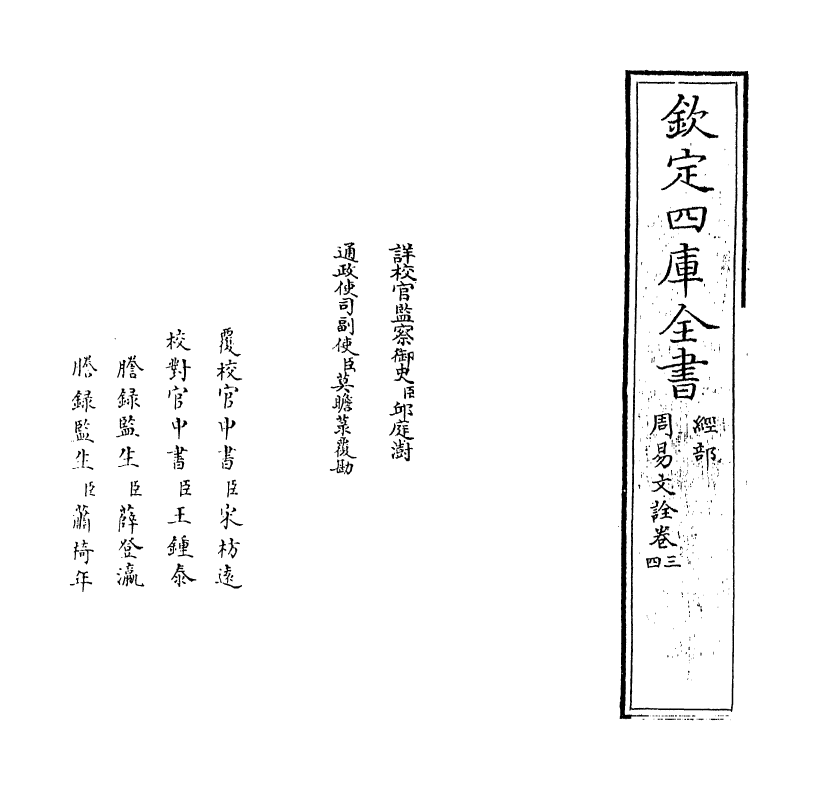 欽定四庫全書
經部
周易文詮卷三四
詳校官監察御史臣邱庭澍
通政使司副使臣莫瞻菉覆勘
覆校官中書臣宋枋遠
校對官中書臣王鍾泰
謄録監生臣薛登瀛
謄録監生臣蕭椅年